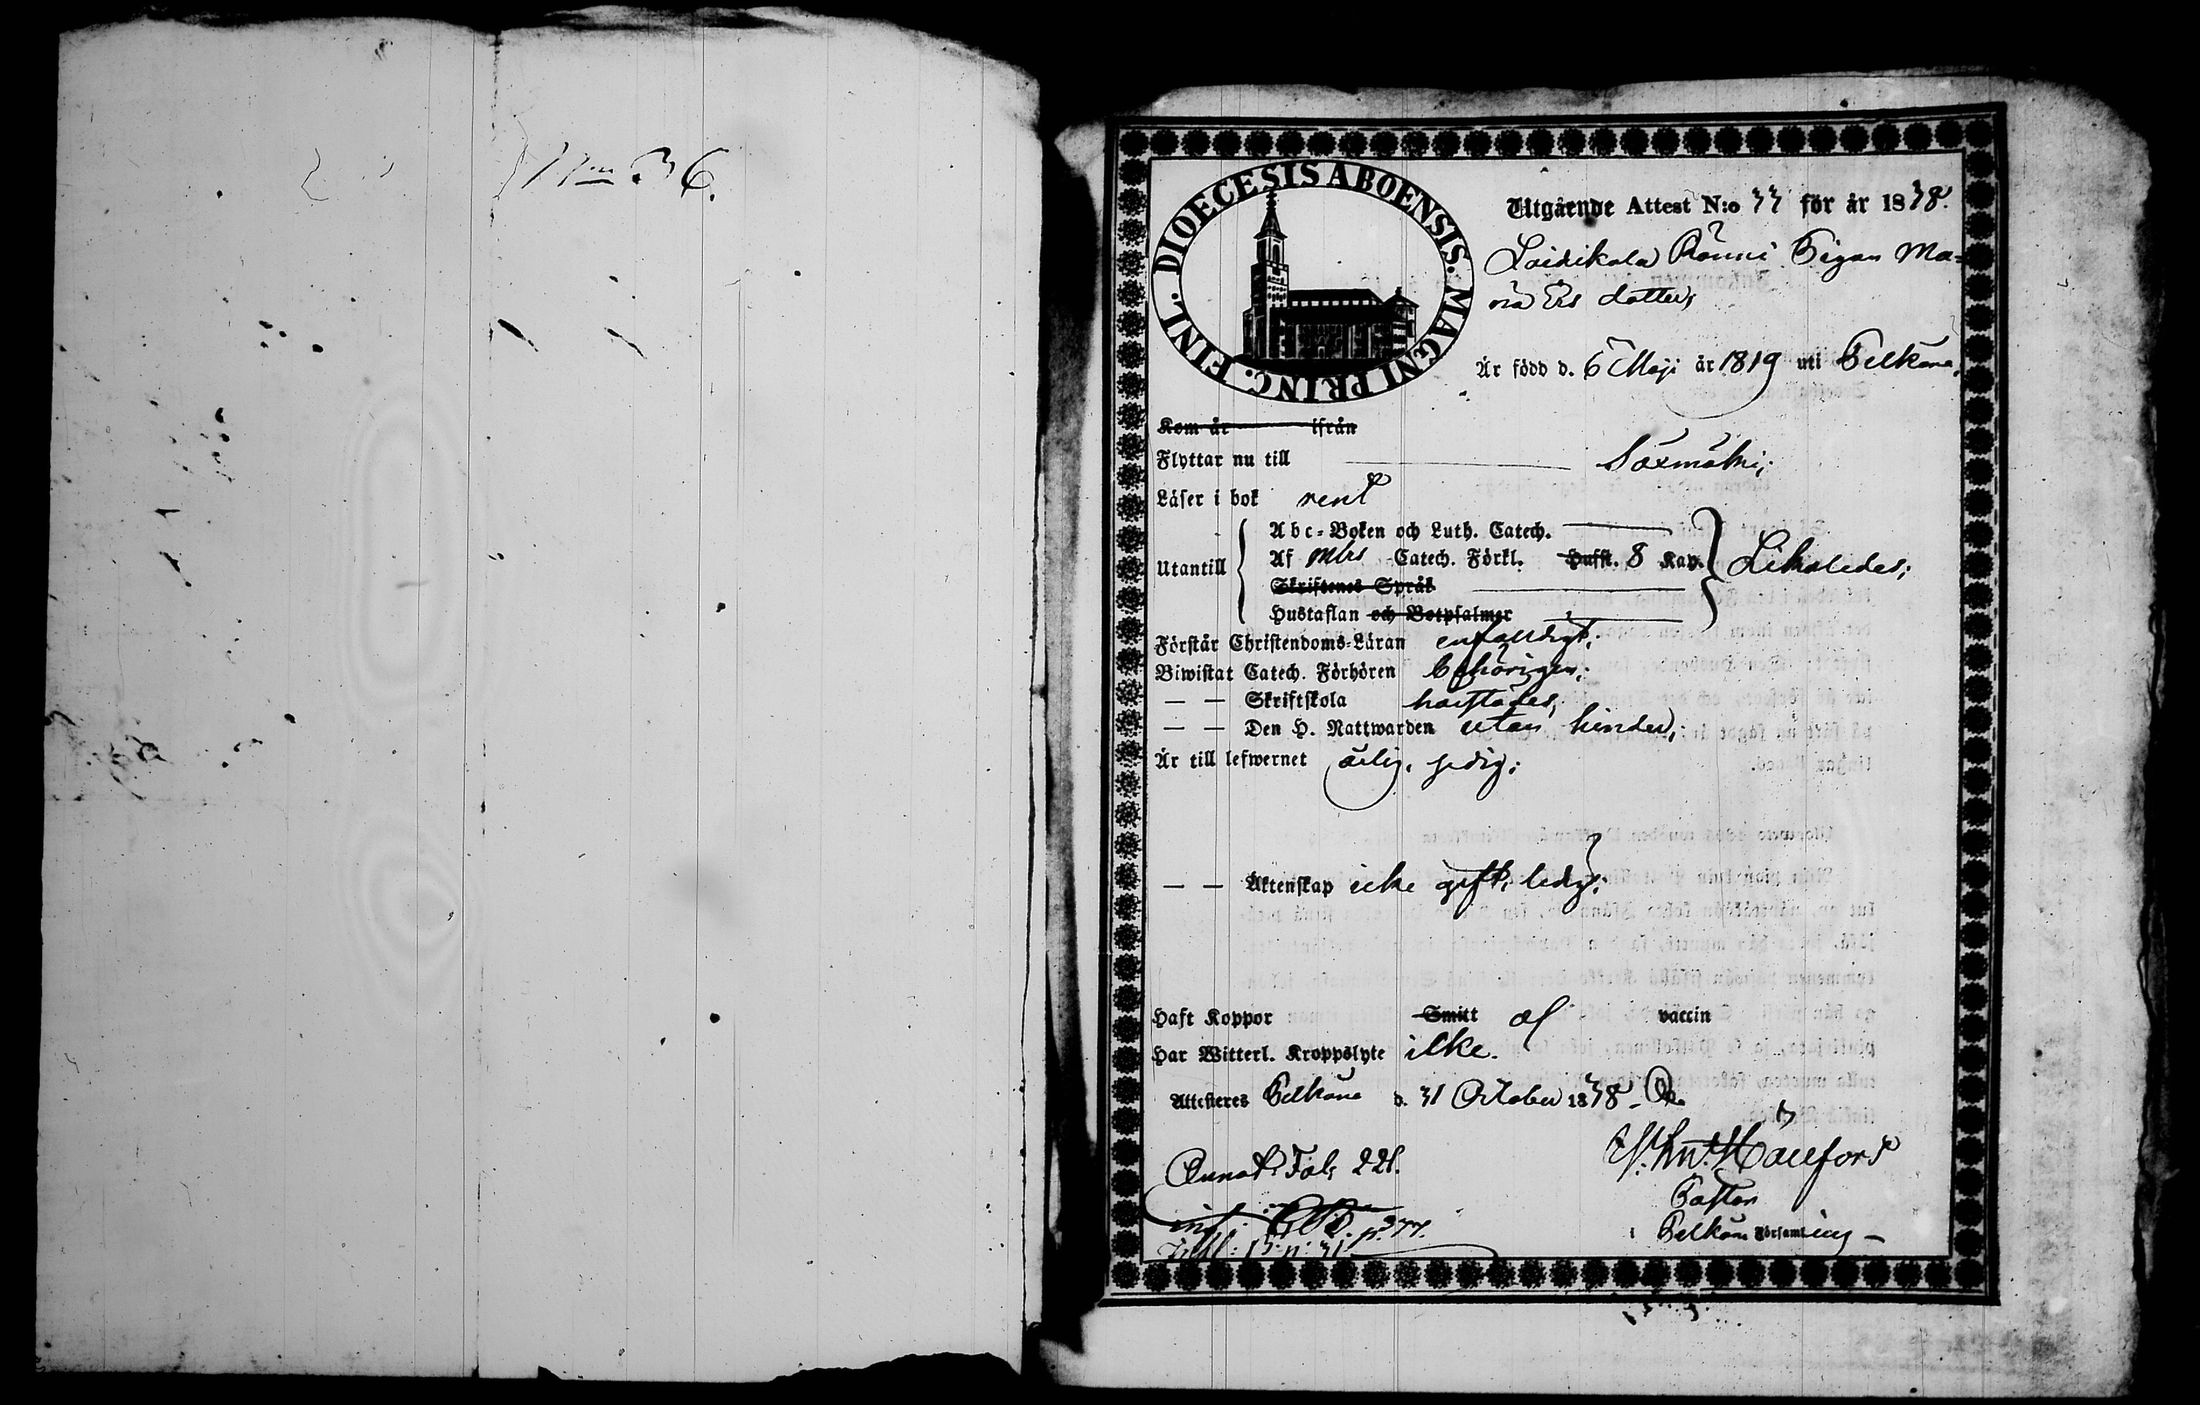 N:o 36.
DIOECESIS ABOENSIS. MAGNI PRINC. FINL.
Utgående Attest N:o 33 för år 1838.
Laidikala Rönni Pigan Ma-
ria Ers dotter,
Är född d. 6 Maji år 1819 uti Pelkäne,
Kom år ifrån
Flyttar nu till Säxmäki;
Läser i bok rent
Abc-Boken och Luth. Catech.
Utantill Af Catech. Förkl. Husst. 8 Kap. Likaledes;
Skriftenes Språk
Hustaflan och Botpsalmer
Förstår Christendoms-Läran enfaldigt;
Biwistat Catech. Förhören behörigen;
— — Skriftskola härstädes,
— — Den H. Nattwarden utan hinder,
Är till lefwernet ärlig, sedig;
— — Äktenskap icke gift, ledig;
Haft Koppor Smitt af vaccin
Har Witterl. Kroppslyte icke.
Attesteres Pelkäne d. 31 October 1838.
Annot. Fol. 221.
Pastor
p. 377.
i Pelkäne Församling
n: 31